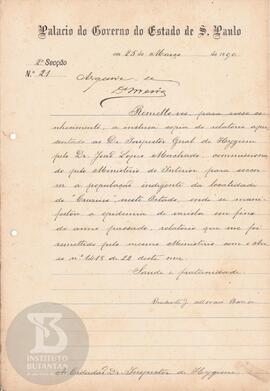 Palacio do Governo do Estado de S. Paulo
em 25 de Março de 1890
2ª Secção
N.º 21
Archive-se
Remetto-vos, para vosso co-
nhecimento, a inclusa copia do relatorio apre-
sentado ao Dr. Inspector Geral de Hygiene
pelo Dr. José Lopes Machado, commissiona-
do pelo Ministerio do Interior para soccor-
rer a população indigente da localidade
do Cruzeiro, neste Estado, onde se mani-
festou a epidemia de variola em fins
do anno passado, relatorio que me foi
remettido pelo mesmo Ministerio com o Avi-
so nº 1418 de 22 deste mez.
Saude e fraternidade.
Prudente J. de Moraes Barros
Ao Cidadão Dr. Inspector de Hygiene
INSTITUTO
BUTANTAN